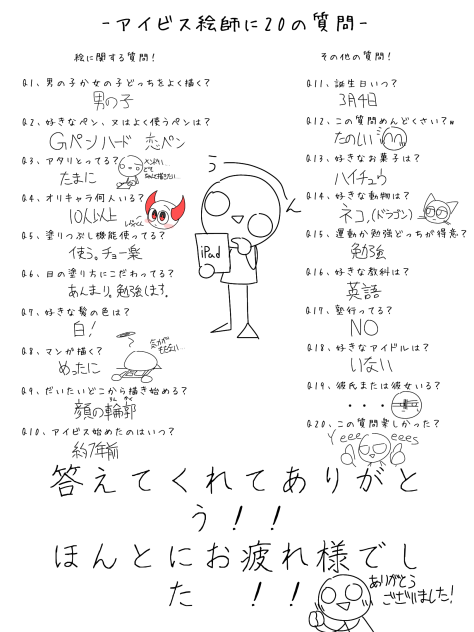 -アイビス絵師に20の質問-
絵に関する質問!
Q1、男の子か女の子どっちをよく描く?
男の子
Q2、好きなペン、又はよく使うペンは?
Gペンハード 恋ペン
Q3、アタリとってる?
たまに
Q4、オリキャラ何人いる?
10人以上
Q5、塗りつぶし機能使ってる?
使う。チョー楽
Q6、目の塗り方にこだわってる?
あんまり。勉強します。
Q7、好きな髪の色は?
白!
Q8、マンガ描く?
めったに
Q9、だいたいどこから描き始める?
顔の輪郭
りん かく
Q10、アイビス始めたのはいつ?
約7年前
う
ん
iPad
その他の質問!
Q11、誕生日いつ?
3月4日
Q12、この質問めんどくさい?w
たのしい
Q13、好きなお菓子は?
ハイチュウ
Q14、好きな動物は?
ネコ,(ドラゴン)
Q15、運動か勉強どっちが得意?
勉強
Q16、好きな教科は?
英語
Q17、塾行ってる?
NO
Q18、好きなアイドルは?
いない
Q19、彼氏または彼女いる?
・・・
Q20、この質問楽しかった?
Yeee
eees
答えてくれてありがと
う!!
ほんとにお疲れ様でし
た !!
ありがとう
ございました!